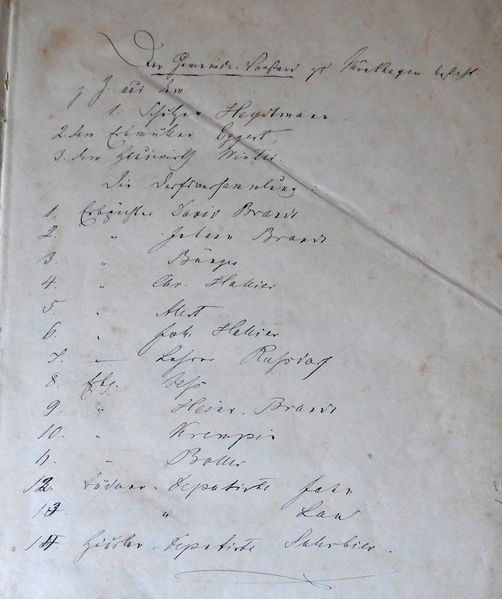 Der Gemeinde-Vorstand zu Stäbelow besteht
z. Z. aus dem
1. Schulzen Heydtmann
2. dem Erbmüller Eggert,
3. dem Hauswirth Winter.
Die Dorfsversammlung:
1. Erbpächter David Brandt
2. " Johann Brandt
3. " Bünger
4. " Chr. Hallier
5. " Alert
6. " Joh. Hallier
7. — Lehrer
8. Erbp.
9. " Heinr. Brandt
10. " Krempin
11. " Boller
12. Büdner-Deputirte Jahn
13. " Lau
14. Häusler-Deputirte Sauerbier.